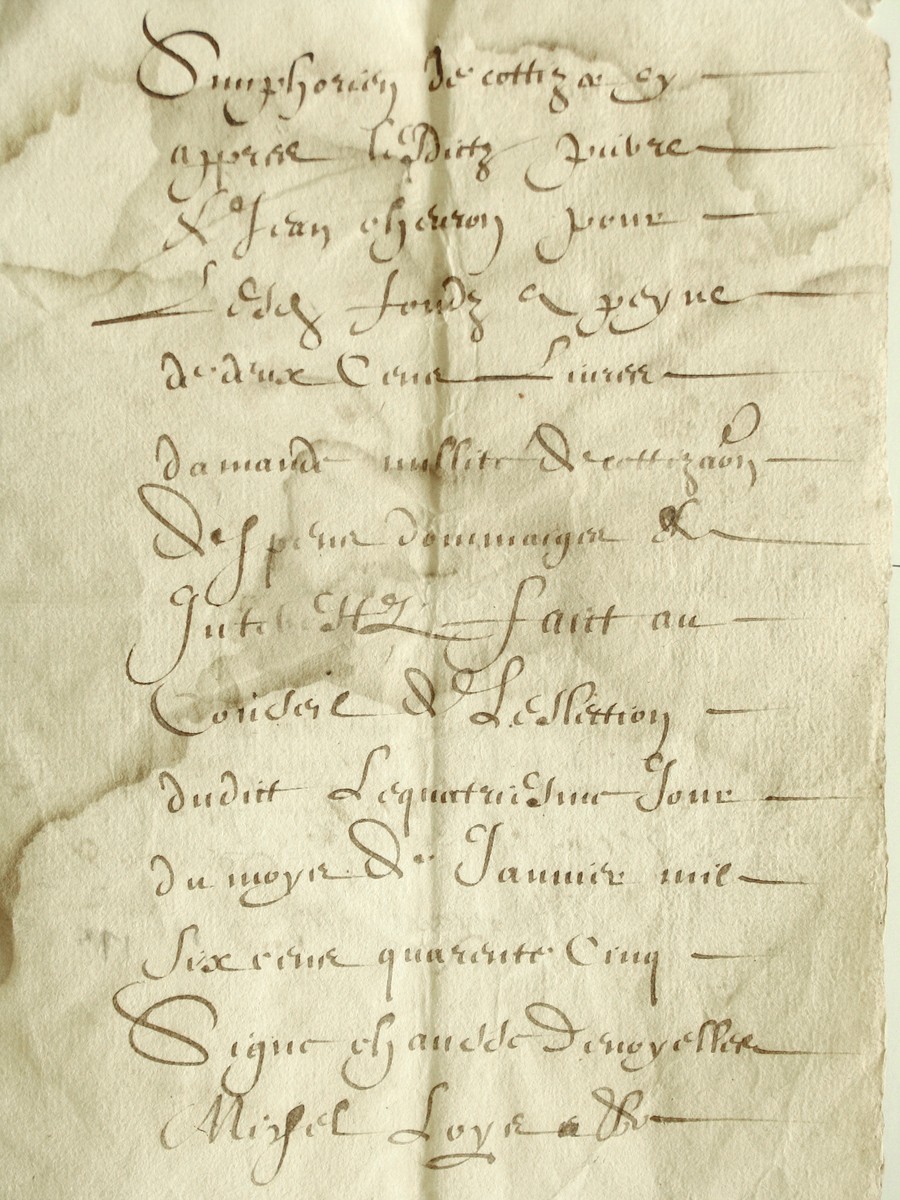 Simphorien de cottizer ey
appres lesdictz puivre
& Jean cherron pour
Lesd fondz a peyne
de deux Cens Livres
damande nullite de cottizaon
despens dommaiges &
Intheretz faict au
Conseil de Leslection
dudict Lequatriesme Jour
du moys de Janvier mil
six cens quarente Cinq
Signe chausse Denoyelles
Michel Loys